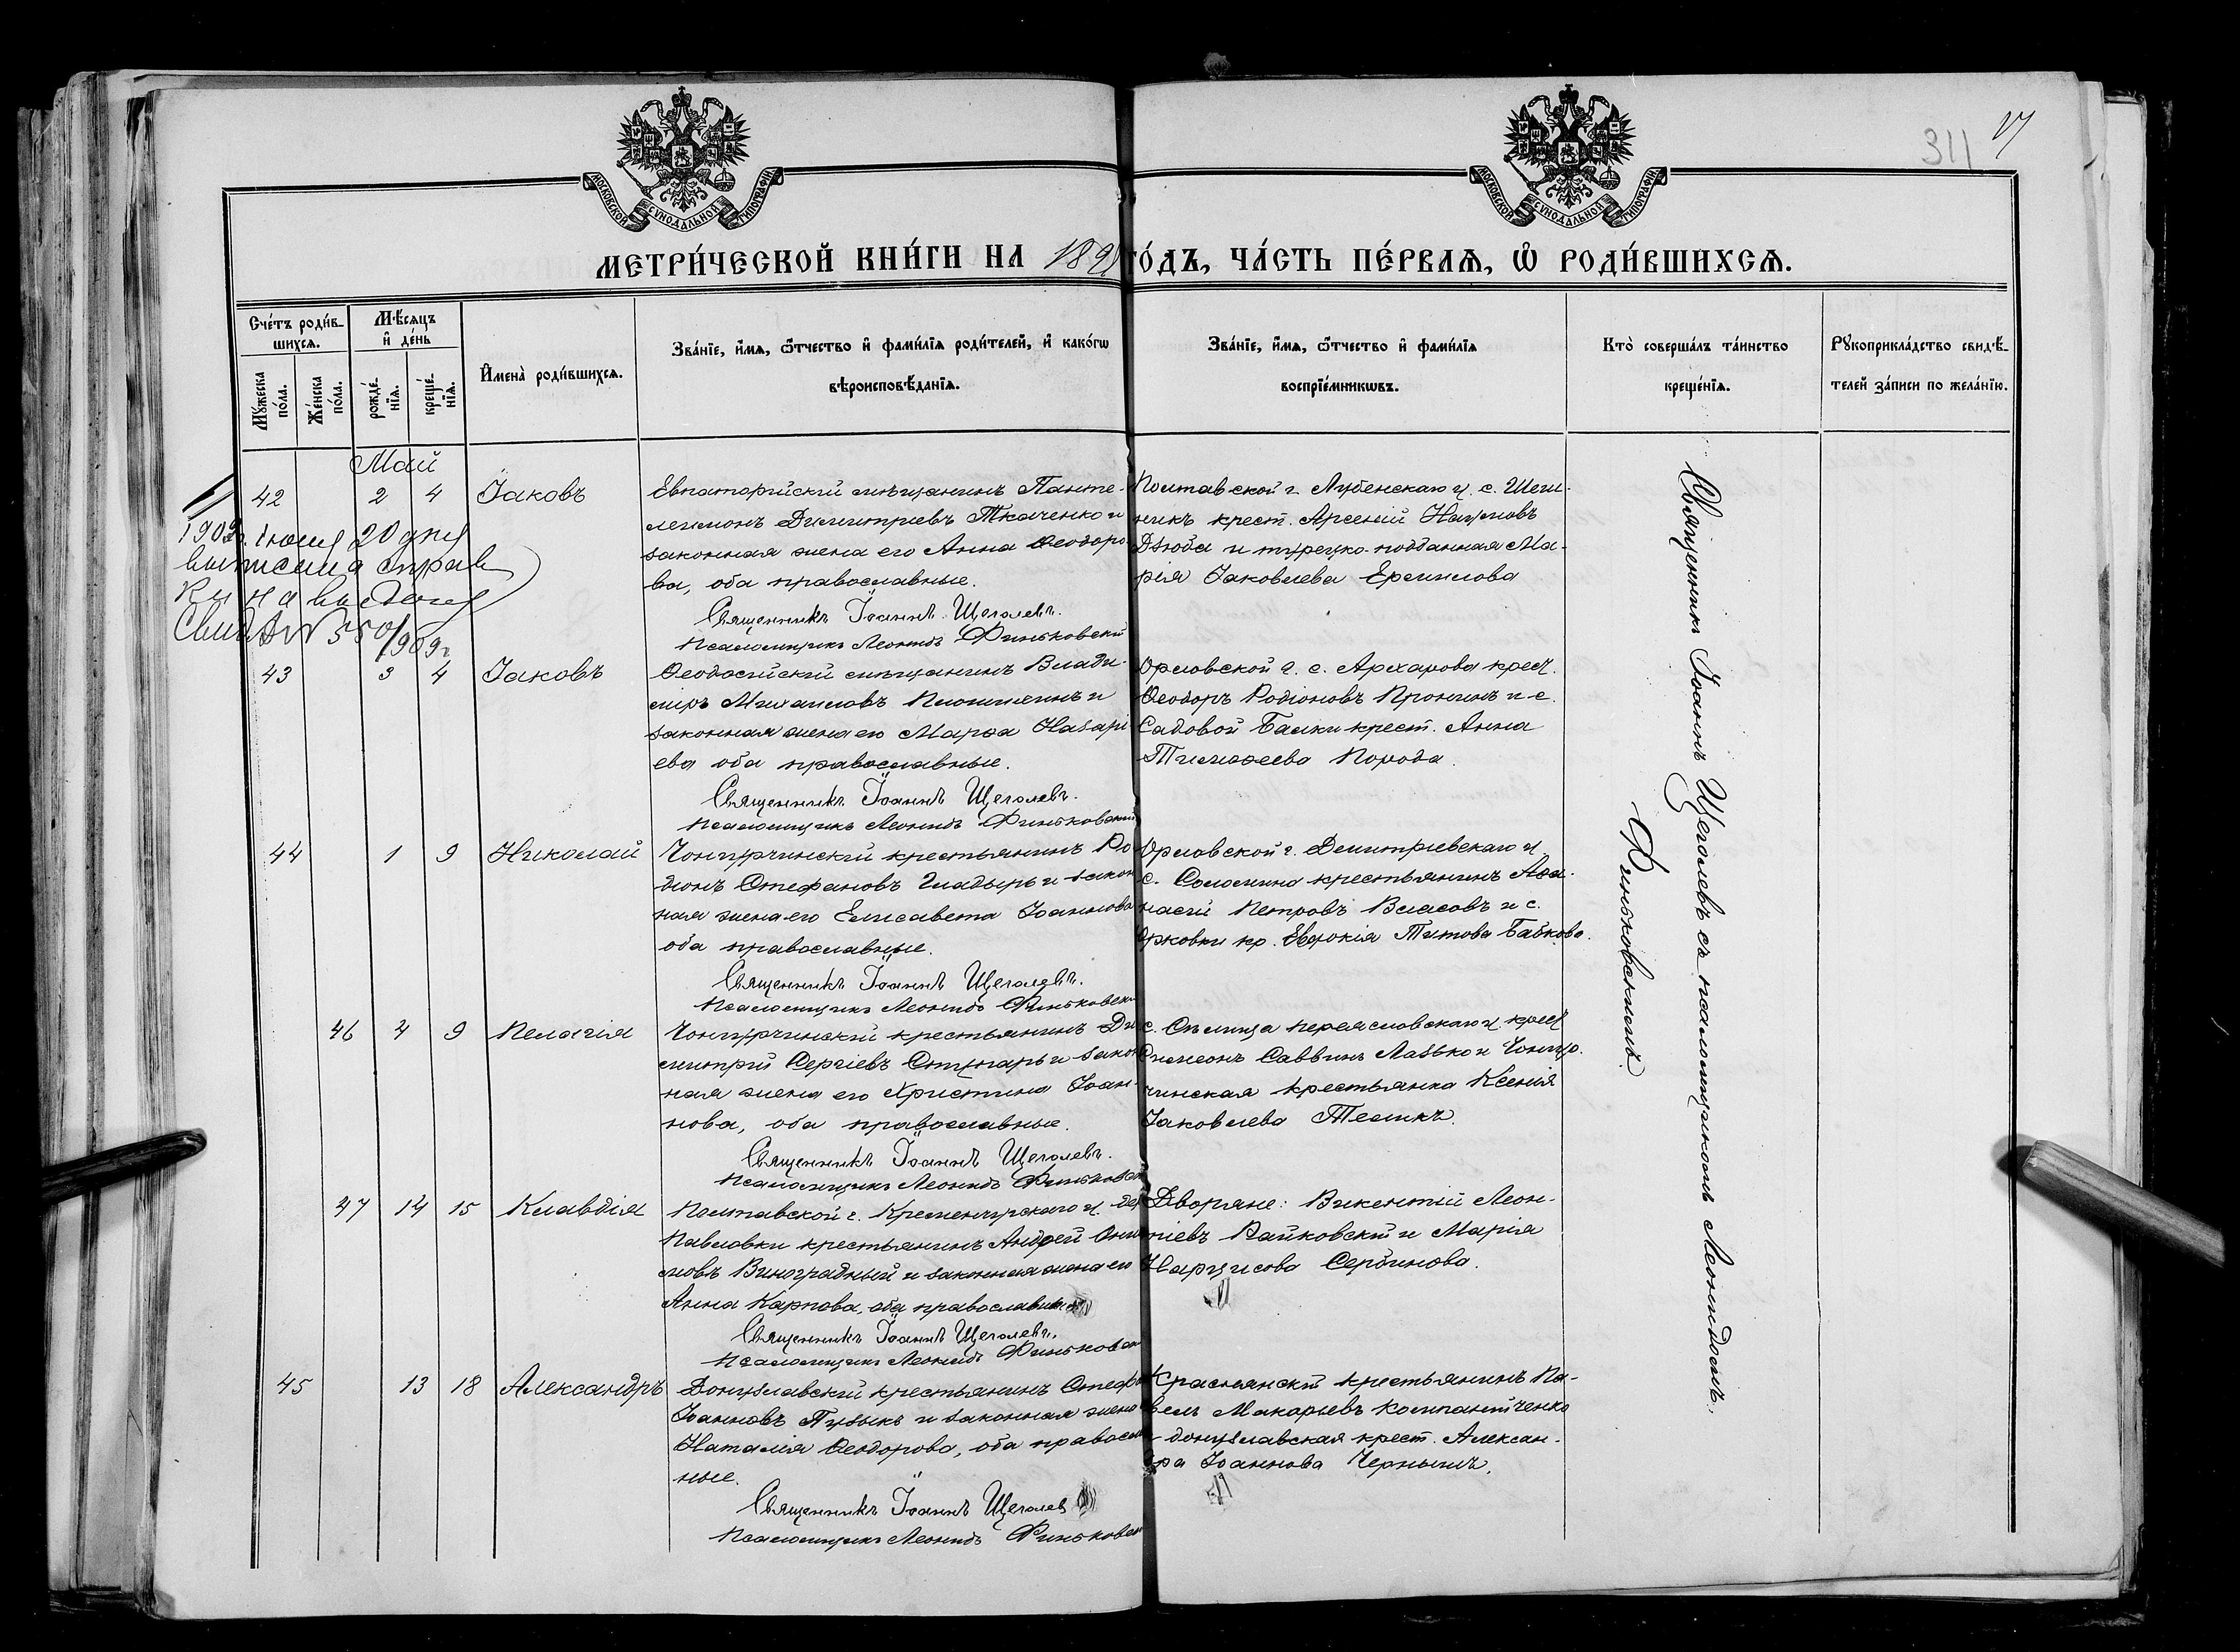 311 17
МОСКОВСКОЙ СѴНОДАЛЬНОЙ ТИПОГРАФІИ
МОСКОВСКОЙ СѴНОДАЛЬНОЙ ТИПОГРАФІИ
МЕТРИ́ЧЕСКОЙ КНИ́ГИ НА 189 ГО́ДЪ, ЧА́СТЬ ПЕ́РВАѦ, Ѡ҆ РОДИ́ВШИХСѦ.
Сче́тъ роди́в-
шихсѧ.
Мꙋ́жеска по́ла.
Же́нска по́ла.
Мѣ́сѧцъ
и҆ де́нь
рожде́-
нїѧ.
креще́-
нїѧ.
И҆мена̀ роди́вшихсѧ.
Зва́нїе, и҆́мѧ, ѻ҆́тчество и҆ фами́лїѧ роди́телей, и҆ како́гѡ
вѣроисповѣ́данїѧ.
Зва́нїе, и҆́мѧ, ѻ҆́тчество и҆ фами́лїѧ
воспрїе́мникѡвъ.
Кто̀ соверша́лъ та́инство
креще́нїѧ.
Рꙋкоприкла́дство свидѣ́-
телей за́писи по жела́нїю.
Май
42 2 4 Іаковъ
Евпаторійскій мѣщанинъ Панте-
леимонъ Димитріевъ Ткаченко и
законная жена его Анна Ѳеодоро-
ва, оба православные.
Священникъ Іоаннъ Щеголевъ.
Псаломщикъ Леонидъ Финьковскій
Полтавской г. Лубенскаго у. с.
никъ крест. Арсеній Наумовъ
Дзюба и турецко-подданная Ма-
рія Іаковлева Ермилова
1909г. Іюня 20 дня
выписана справ
на выдачу
Свид. № 550/1909г
43 3 4 Іаковъ
Ѳеодосійскій мѣщанинъ Влади-
міръ Михаиловъ и
законная жена его Марѳа Назарі
ева оба православные.
Священникъ Іоаннъ Щеголевъ.
Псаломщикъ Леонидъ Финьковскій
Орловской г. с. Архарова крест.
Ѳеодоръ Родіоновъ Пронинъ и с.
Садовой Балки крест. Анна
Тимоѳеева
44 1 9 Николай
Чонгурчинскій крестьянинъ Ро
діонъ Стефановъ Гладырь и закон
ная жена его Елисавета Іоаннова
оба православные.
Священникъ Іоаннъ Щеголевъ.
Псаломщикъ Леонидъ Финьковскі
Орловской г. Дмитріевскаго у.
с. Соломина крестьянинъ Аѳа-
насій Петровъ Власовъ и с.
кр. Евдокія Титова Бабкова.
46 4 9 Пелагія
Чонгурчинскій крестьянинъ Ди
митрій Сергіевъ и закон
ная жена его Христина Іоан-
нова, оба православные.
Священникъ Іоаннъ Щеголевъ.
Псаломщикъ Леонидъ Финьковскі
с. Переясловскаго у. крест
Симеонъ Саввинъ Лазько и Чонгур-
чинская крестьянка Ксенія
Іаковлева
47 14 15 Клавдія
Полтавской г. Кременчугскаго у. дер
Павловки крестьянинъ Андрей
мовъ Виноградный и законная жена его
Анна Карпова, оба православные
Священникъ Іоаннъ Щеголевъ.
Псаломщикъ Леонидъ Финьковскі
Дворяне: Викентій Леон-
тіевъ Райковскій и Марія
Нарцисова Сербинова.
45 13 18 Александръ
Донузлавскій крестьянинъ Стефа
Іоанновъ Пузыкъ и законная жена
Наталія Ѳеодорова, оба правосла
ные.
Священникъ Іоаннъ Щеголев
Псаломщикъ Леонидъ Финьковск
крестьянинъ Па-
велъ Макарьевъ Компанійченко
и донузлавская крест. Алексан-
дра Іоаннова Чернышъ.
Священникъ Іоаннъ Щеголевъ съ псаломщикомъ Леонидомъ
Финьковскимъ.